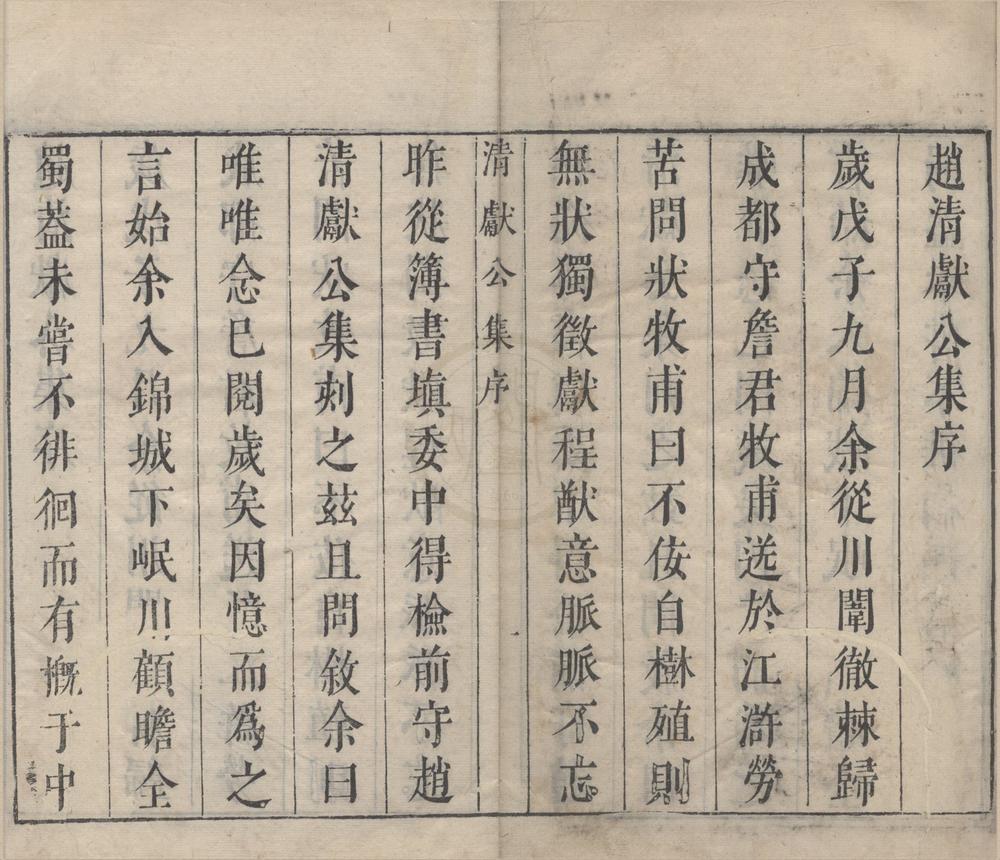 趙清獻公集序
歲戊子九月余從川闈徹棘歸
成都守詹君牧甫送於江滸勞
苦問狀牧甫曰不佞自樹殖則
無狀獨徵獻程猷意脈脈不忘
清獻公集序
昨從簿書塡委中得檢前守趙
清獻公集刻之茲且問敘余曰
唯唯念已閱歲矣因憶而爲之
言始余入錦城下岷川顧瞻全
蜀葢未嘗不徘徊而有慨于中